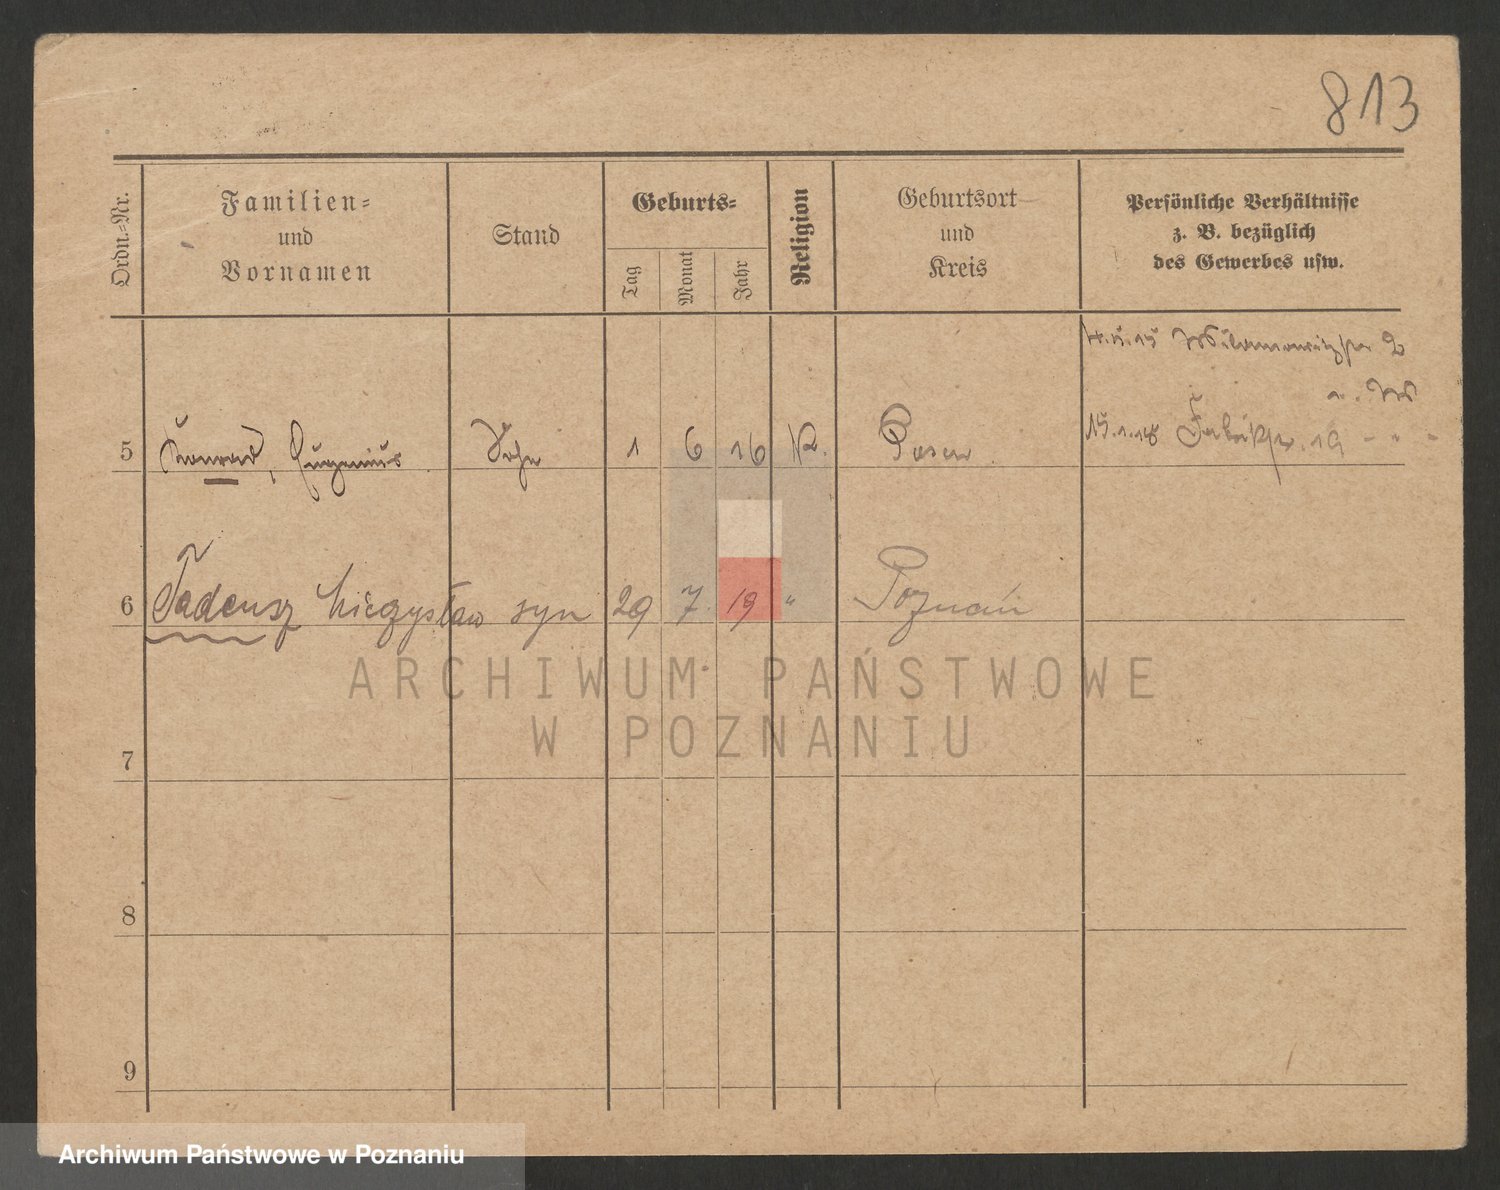 813
Ordn.-Nr.
Familien-
und
Vornamen
Stand
Geburts-
Tag
Monat
Jahr
Religion
Geburtsort
und
Kreis
Persönliche Verhältnisse
z. B. bezüglich
des Gewerbes usw.
15.1.18 Fabrikstr. 19 - " -
5 Konrad, Eugenius Sohn 1 6 16 K. Posen
6 Tadeusz Mieczysław syn 29 7. 19 " Poznań
ARCHIWUM PAŃSTWOWE
W POZNANIU
7
8
9
Archiwum Państwowe w Poznaniu